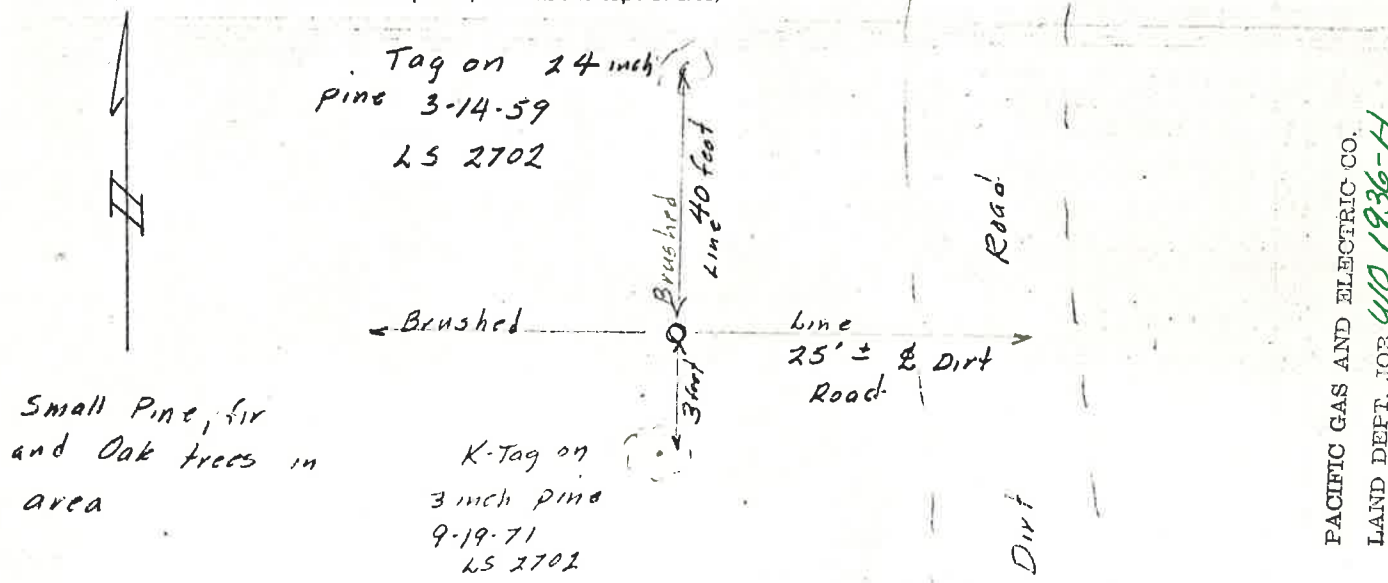 Tag on 24 inch
pine 3-14-59
LS 2702
Brushed
Line 40 feet
Road
Brushed
Line
25' ± ℄ Dirt
Road
3 feet
Small Pine, fir
and Oak trees in
area
K-Tag on
3 inch pine
9-19-71
LS 2702
Dirt
PACIFIC GAS AND ELECTRIC CO.
LAND DEPT. JOB 1936-H